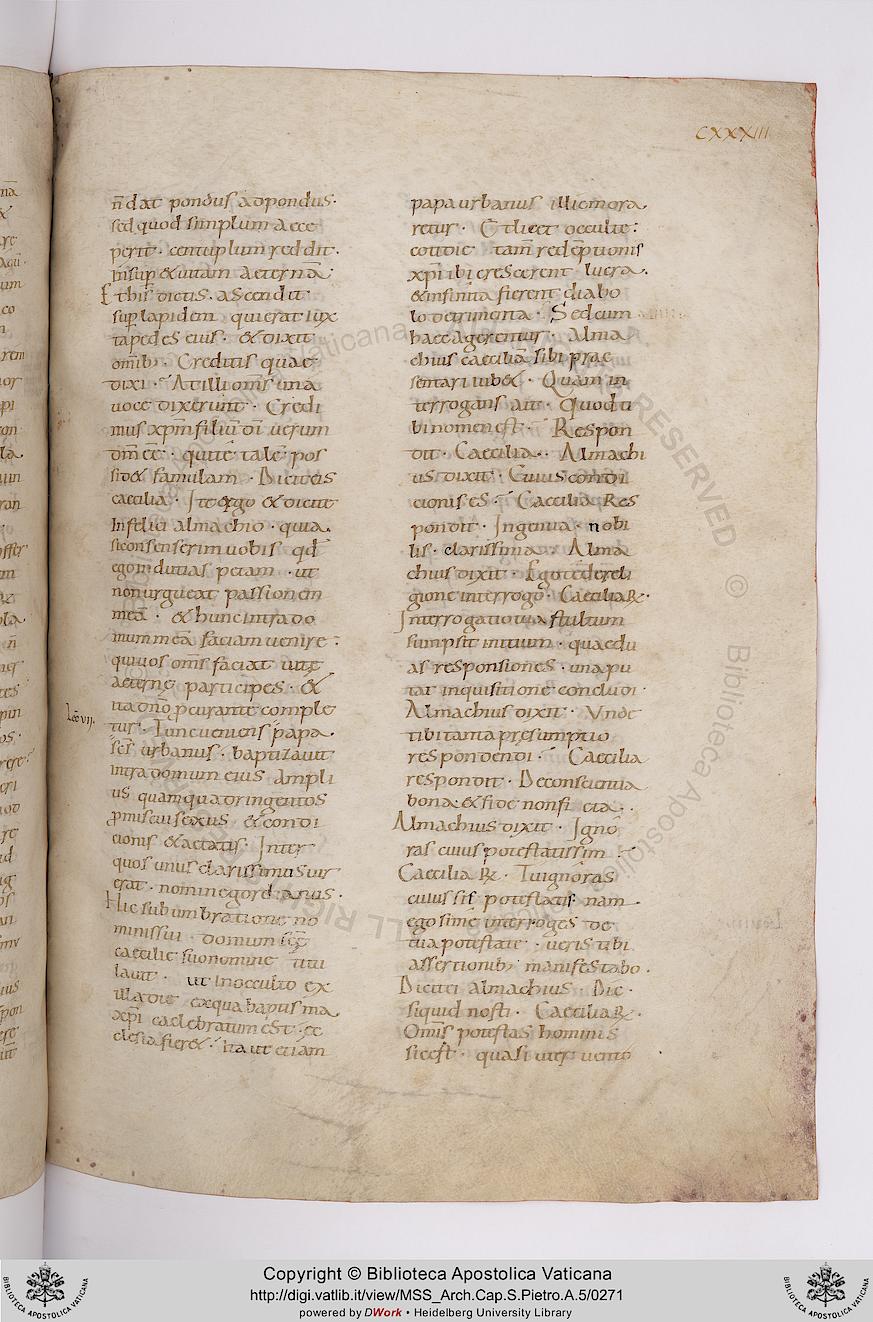 CXXXIII
n̄ dat pondus ad pondus·
sed quod simplum acce
perit· centuplum reddit·
Insup̄ & uitam aeternā·
Et his dictis· ascendit
sup̄ lapidem qui erat iux
ta pedes eius· & dixit
omib; Creditis quae
dixi· At illi om̄s una
uoce dixerunt· Credi
mus xpm̄ filiū dī uerum
dm̄ eē· qui te talē pos
sid& famulam· Dicit eis
caecilia· Ite ergo & dicite
Infelici almachio· quia
si consenserim uobis qd̄
ego indutias petam· ut
non urgueat passionem
meā· & hunc intra do
mum meā faciam uenire·
qui uos om̄s faciat uitę
aeternę participes· &
ita dn̄o p̄curante comple
Lec̄ vij·
tur· Tunc ueniens papa·
sc̄s urbanus· baptizauit
intra domum eius ampli
us quam quadringentos
p̄miscui sexus & condi
cionis & aetatis· Inter
quos unus clarissimus uir
erat· nomine gordianus·
Hic sub umbratione no
minis sui· domum sc̄ę
caecilie suo nomine titu
lauit· ut In occulto ex
illa die ex qua baptisma
xpi caelebratum est· ec
clesia fier&· ita ut etiam
papa urbanus illic mora
retur· Et lic& occulte:
cottidie tam̄ redēptionis
xpi ibi crescerent lucra·
& infinita fierent diabo
lo detrimenta· Sed cum
haec agerentur· Alma
chius caeciliā sibi prae
sentari iub&· Quam in
terrogans ait· Quod ti
bi nomen est· Respon
dit· Caecilia· Almachi
us dixit· Cuius condi
cionis es· Caecilia Res
pondit· Ingenua· nobi
lis· clarissima· Alma
chius dixit· Ego te de reli
gione interrogo· Caecilia R̄·
Interrogatio tua stultum
sumpsit initium· quae du
as responsiones· una pu
tat inquisitione concludi·
Almachius dixit· Unde
tibi tanta presumptio
respondendi· Caecilia
respondit· De conscientia
bona & fide non ficta·
Almachius dixit· Ignō
ras cuius potestatis sim
Caecilia R̄· Tu ignoras
cuius sis potestatis· nam
ego si me interroges de
tua potestate· ueris tibi
assertionib; manifestabo·
Dicit ei Almachius· Dic·
si quid nosti· Caecilia R̄·
Omis potestas hominis
sic est· quasi uter uento
Copyright © Biblioteca Apostolica Vaticana
http://digi.vatlib.it/view/MSS_Arch.Cap.S.Pietro.A.5/0271
powered by DWork • Heidelberg University Library